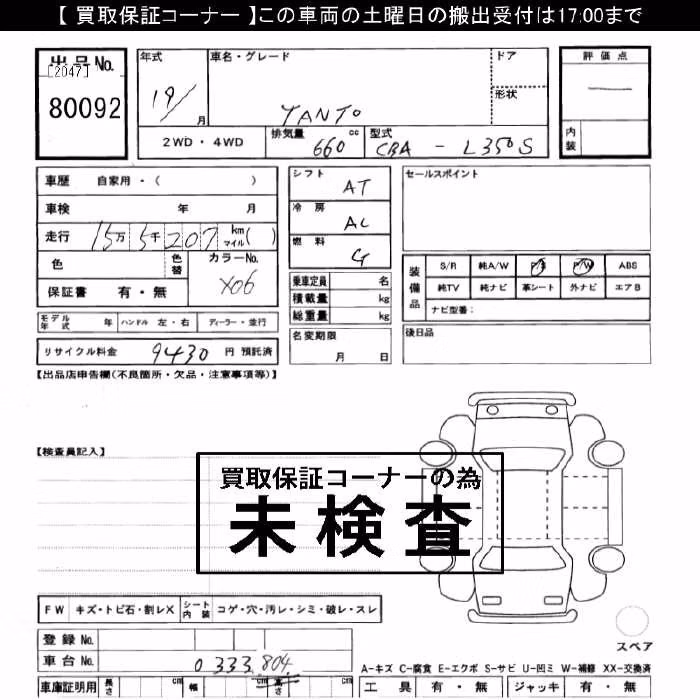 【 買取保証コーナー 】この車両の土曜日の搬出受付は17:00まで
出品No. [2047] 80092
年式 19/ 月
車名・グレード TANTO
ドア
形状
評価点 —
内装
2WD・4WD
排気量 660 cc
型式 CBA - L350S
車歴 自家用・( )
車検 年 月
走行 15万 5千 207 km マイル( )
色 色替 カラーNo. X06
保証書 有・無
シフト AT
冷房 AC
燃料 G
乗車定員 名
積載量 kg
総重量 kg
セールスポイント
装備品 S/R 純A/W P/S P/W ABS
純TV 純ナビ 革シート 外ナビ エアB
ナビ型番:
モデル年式 年 ハンドル 左・右 ディーラー・並行
名変期限 月 日
後日品
リサイクル料金 9430 円 預託済
【出品店申告欄(不良箇所・欠品・注意事項等)】
【検査員記入】
買取保証コーナーの為
未検査
FW キズ・トビ石・割レX シート内装 コゲ・穴・汚レ・シミ・破レ・スレ
登録No.
車台No. 0333804
スペア
A-キズ C-腐食 E-エクボ S-サビ U-凹ミ W-補修 XX-交換済
車庫証明用 長さ cm 幅 cm 高さ cm 工具 有・無 ジャッキ 有・無